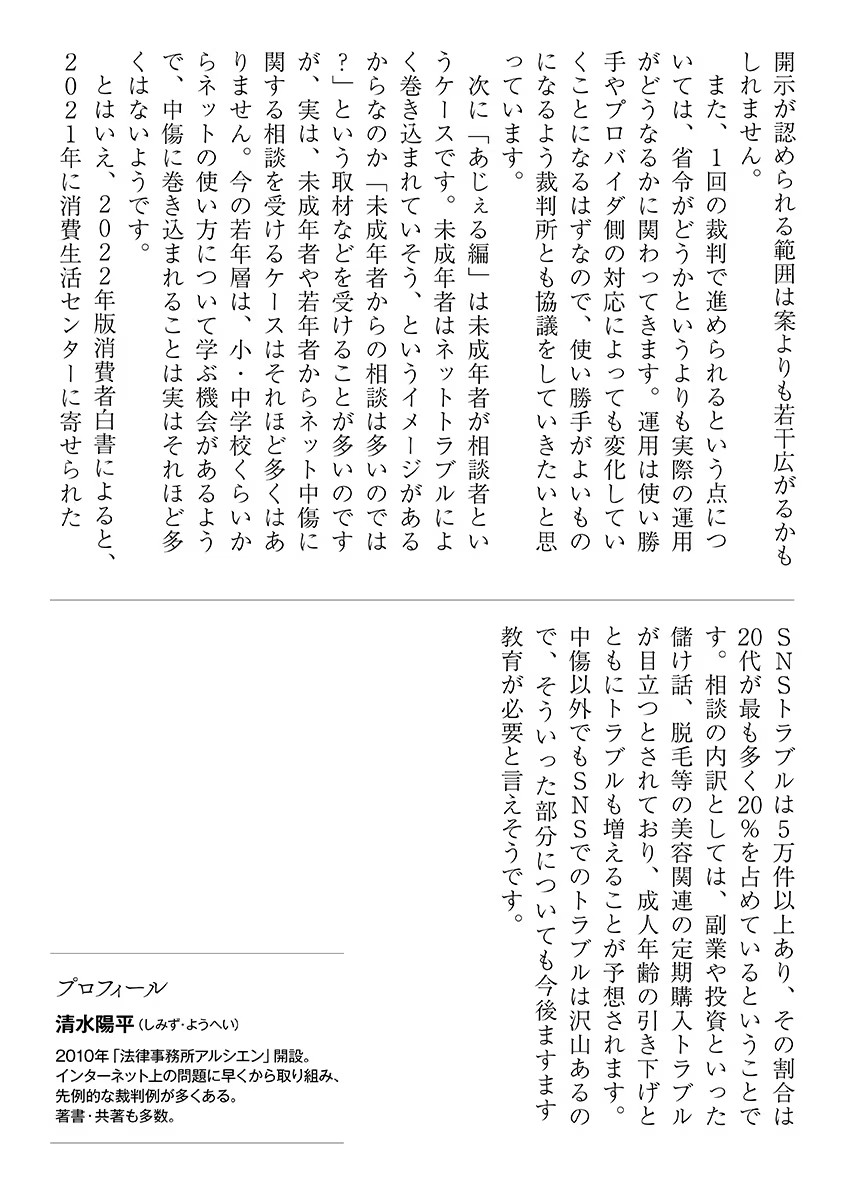 開示が認められる範囲は案よりも若干広がるかも
しれません。
　また、1回の裁判で進められるという点につ
いては、省令がどうかというよりも実際の運用
がどうなるかに関わってきます。運用は使い勝
手やプロバイダ側の対応によっても変化してい
くことになるはずなので、使い勝手がよいもの
になるよう裁判所とも協議をしていきたいと思
っています。
　次に「あじぇる編」は未成年者が相談者とい
うケースです。未成年者はネットトラブルによ
く巻き込まれていそう、というイメージがある
からなのか「未成年者からの相談は多いのでは
?」という取材などを受けることが多いのです
が、実は、未成年者や若年者からネット中傷に
関する相談を受けるケースはそれほど多くはあ
りません。今の若年層は、小・中学校くらいか
らネットの使い方について学ぶ機会があるよう
で、中傷に巻き込まれることは実はそれほど多
くはないようです。
　とはいえ、2022年版消費者白書によると、
2021年に消費生活センターに寄せられた
SNSトラブルは5万件以上あり、その割合は
20代が最も多く20%を占めているということで
す。相談の内訳としては、副業や投資といった
儲け話、脱毛等の美容関連の定期購入トラブル
が目立つとされており、成人年齢の引き下げと
ともにトラブルも増えることが予想されます。
中傷以外でもSNSでのトラブルは沢山あるの
で、そういった部分についても今後ますます
教育が必要と言えそうです。
プロフィール
清水陽平(しみず・ようへい)
2010年「法律事務所アルシエン」開設。
インターネット上の問題に早くから取り組み、
先例的な裁判例が多くある。
著書・共著も多数。